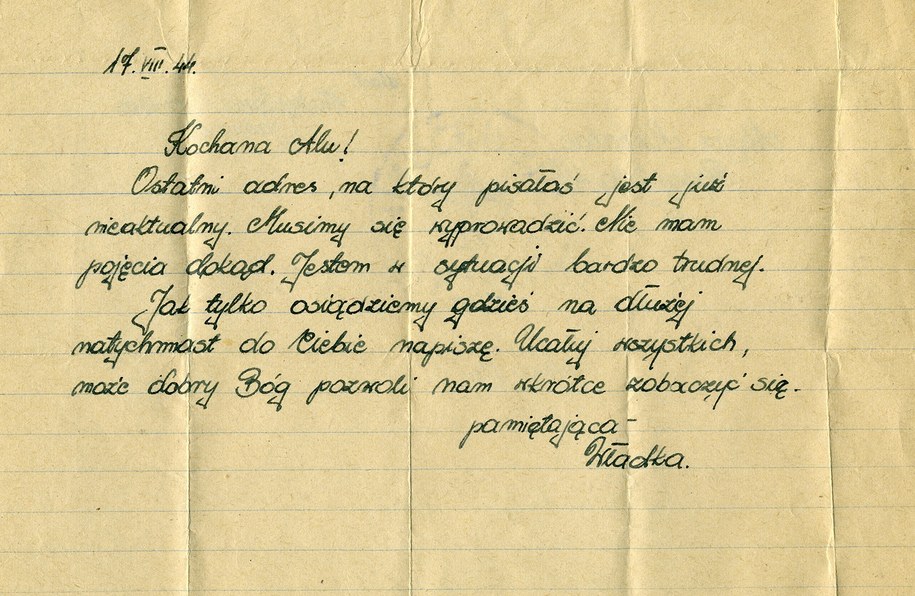 17.VIII.44.
Kochana Alu!
Ostatni adres, na który pisałaś jest już
nieaktualny. Musimy się wyprowadzić. Nie mam
pojęcia dokąd. Jestem w sytuacji bardzo trudnej.
Jak tylko osiądziemy gdzieś na dłużej
natychmast do Ciebie napiszę. Ucałuj wszystkich,
może dobry Bóg pozwoli nam wkrótce zobaczyć się.
pamiętająca -
Władka.